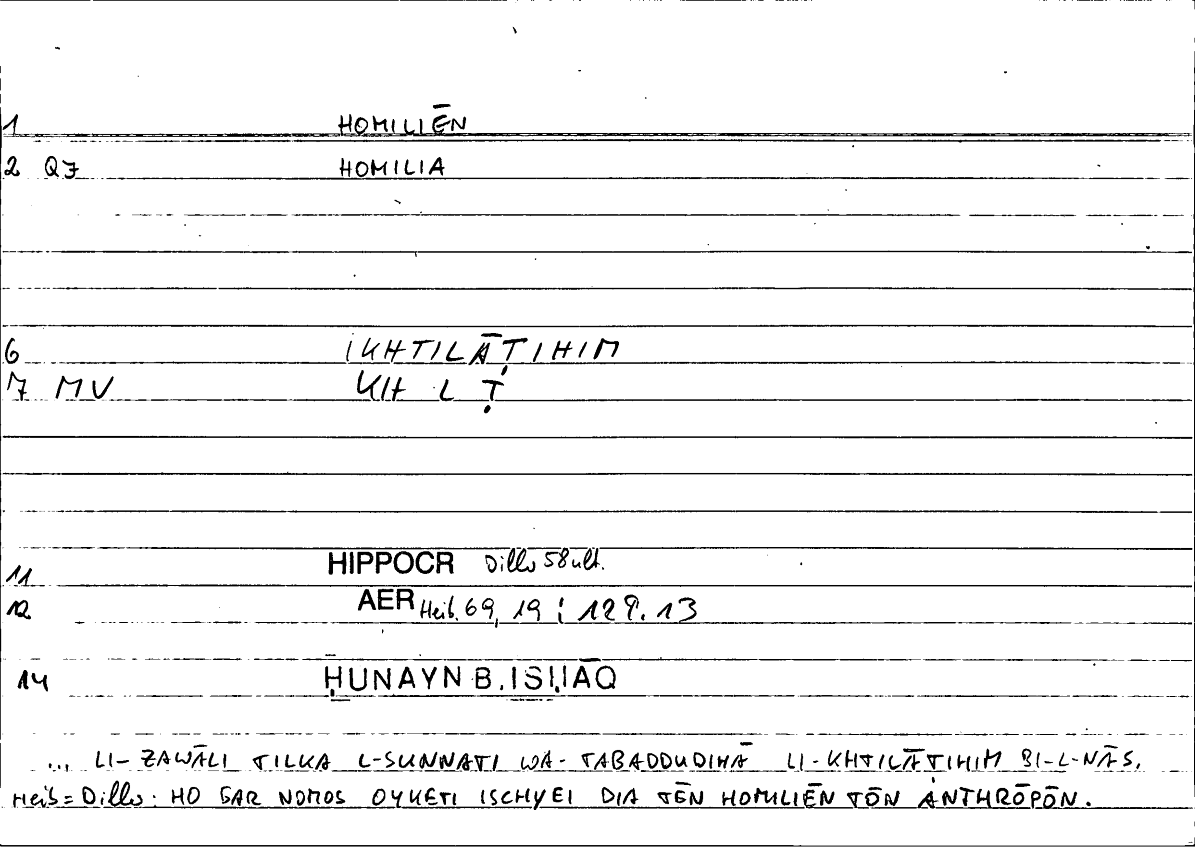 1 HOMILIĒN
2 Q7 HOMILIA
6 IKHTILĀṬIHIM
7 MV KH L Ṭ
11 HIPPOCR Diller 58 ult.
12 AER Heib. 69, 19 ; 129. 13
14 ḤUNAYN B. ISḤĀQ
... LI-ZAWĀLI TILKA L-SUNNATI WA-TABADDUDIHĀ LI-KHTILĀṬIHIM BI-L-NĀS.
Heib = Diller: HO GAR NOMOS OYKETI ISCHYEI DIA TĒN HOMILIĒN TŌN ANTHRŌPŌN.